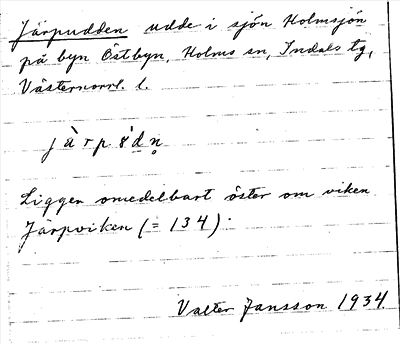 Järpudden udde i sjön Holmsjön
på byn Östbyn, Holms sn, Indals tg,
Västernorrl. l.
jàrp8̀dn̥
Ligger omedelbart öster om viken
Järpviken (= 134).
Valter Jansson 1934.